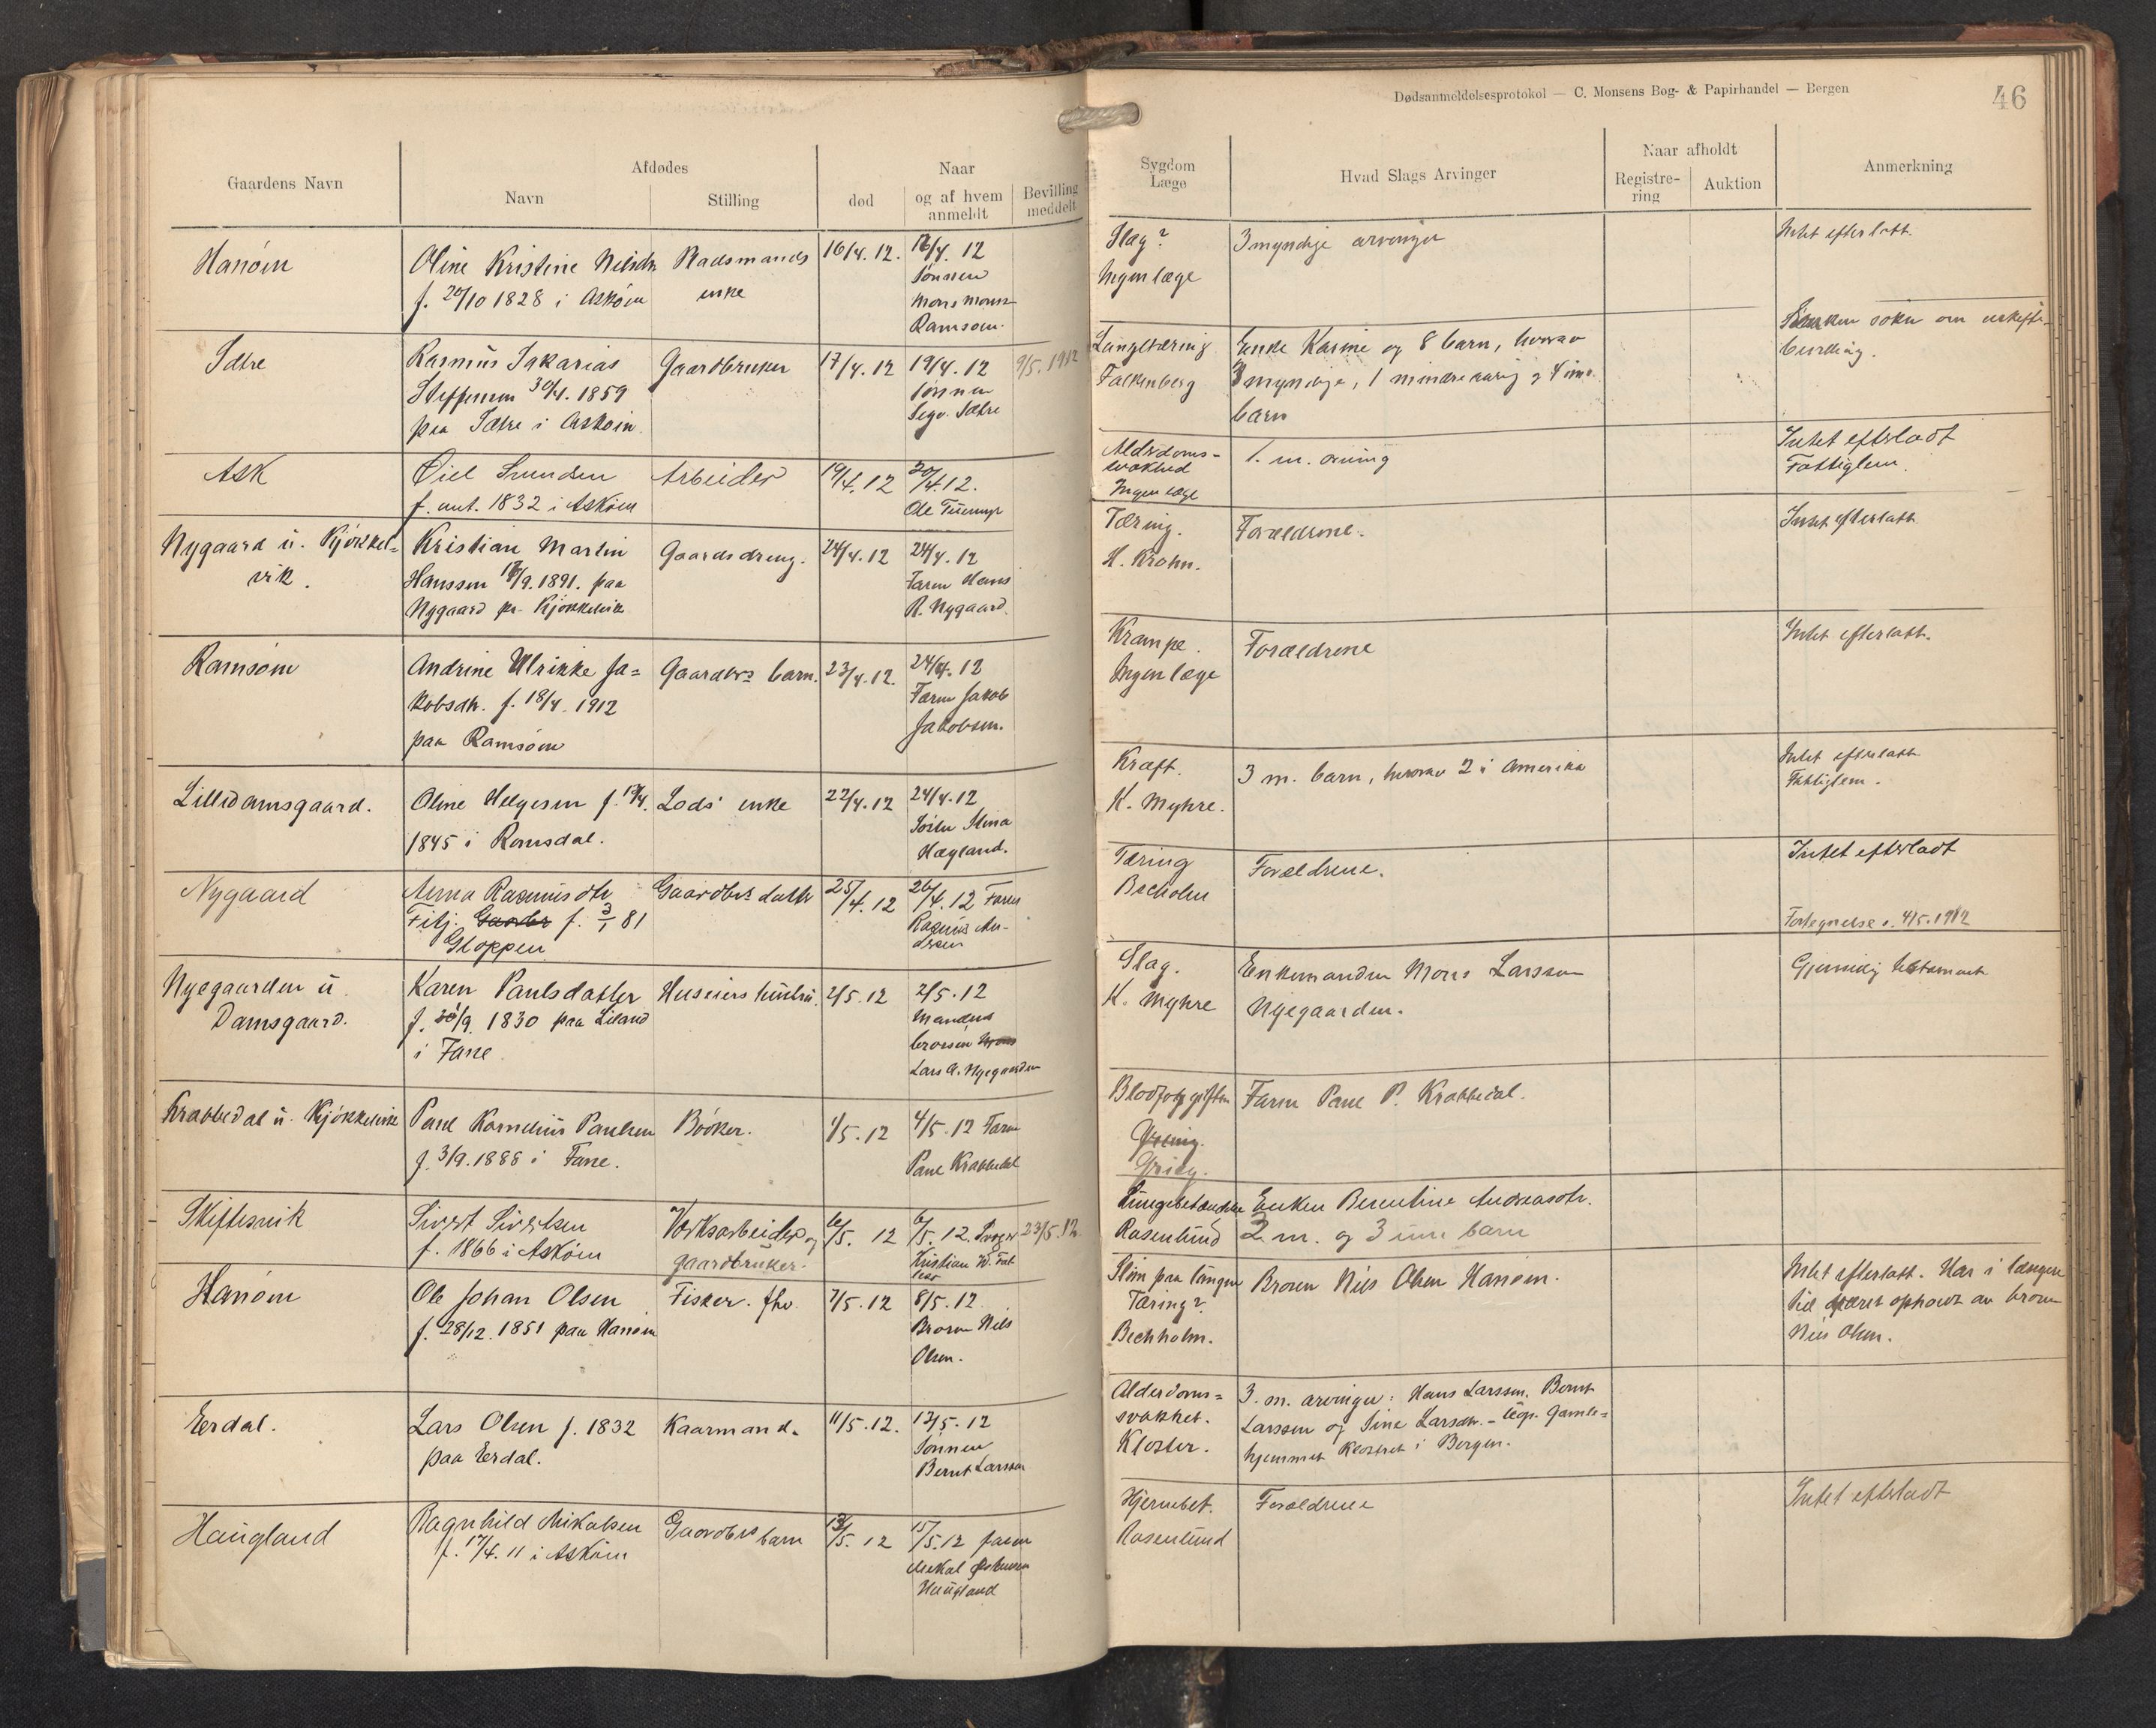 Dødsanmeldelsesprotokol — C. Monsens Bog- & Papirhandel — Bergen
46
Gaardens Navn
Afdødes
Navn
Stilling
Naar
død
og af hvem
anmeldt
Bevilling
meddelt
Sygdom
Læge
Hvad Slags Arvinger
Naar afholdt
Registre-
ring
Auktion
Anmerkning
Hanøin
Oline Kristine Nilsdtr
f. 20/10 1828 i Askøin
enke
16/4. 12.
16/4. 12
sønnen
Mons Mons
Ramsøin.
Slag?
Ingen læge
3 myndige arvinger
Intet efterlatt.
Sætre
Rasmus Sakarias
Steffensen 30/4. 1859
paa Sætre i Askøin
Gaardbruker
17/4. 12
19/4. 12
sønnen
Sætre
9/5. 1912
Lungetæring
Falkenberg
Enke Karine og 8 barn, hvorav
3 myndige, 1 mindreaarig og 4 um.
barn
søker om uskifte-
bevilling.
Ask
f. ant. 1832 i Askøin
Arbeider
19/4. 12
20/4. 12.
Ole
Alderdoms-
svakhed
Ingen læge
1. m. arving
Intet efterladt
Fattiglem.
Nygaard u. Kjøkkel=
vik.
Kristian Martin
Hanssen 17/9. 1891. paa
Nygaard pr. Kjøkkelvik
Gaardsdreng.
24/4. 12
24/4. 12
Faren Hans
R. Nygaard.
Tæring.
H. Krohn.
Forældrene.
Intet efterlatt
Ramsøin
Andrine Ulrikke Ja=
kobsdtr. f. 18/4. 1912
paa Ramsøin
Gaardbrs barn.
23/4. 12.
24/4. 12
Faren Jakob
Jakobsen.
Krampe.
Ingen læge
Forældrene
Intet efterlatt.
Lilledamsgaard.
Oline Helgesen f. 19/4.
1845 i Romsdal.
Lods enke
22/4. 12
24/4. 12
Stina
Hægland.
Kræft.
K. Myhre.
3 m. barn, hvorav 2 i Amerika
Intet efterlatt
Fattiglem.
Nygaard
Anna Rasmusdtr
Fitj. Gaarbr f. 3/1 81
Gloppen
Gaardbrs datter
25/4. 12
26/4. 12 Faren
Rasmus An-
dersen
Tæring
Bechholm
Forældrene.
Intet efterladt
Fortegnelse o. 4/5. 1912
Nyegaarden u.
Damsgaard.
Karen Paulsdatter
f. 30/9. 1830 paa Liland
i Fane.
Huseiers hustru.
2/5. 12
2/5. 12
Mandens
brorsøn Mons
Lars A. Nyegaarden
Slag.
K. Myhre
Enkemanden Mons Larssen
Nyegaarden.
Gjensidig testament
Krabbedal u. Kjøkkelvik
Paul Kornelius Paulsen
f. 3/9. 1888 i Fane.
Bøker.
1/5. 12
4/5. 12 Faren
Paul Krabbedal
Blodforgiften
Grieg.
Faren Paul P. Krabbedal.
Skiftesvik
Sivert Sivertsen
f. 1866 i Askøin
Verksarbeider og
gaardbruker.
6/5. 12
6/5. 12. Svoger
Kristian W.
23/5. 12.
Lungebetændelse
Rosenlund
Enken Berentine Andreasdtr.
2 m. og 3 um barn
Hanøin
Ole Johan Olsen
f. 28/12. 1851 paa Hanøin
Fisker. fhv.
7/5. 12
8/5. 12.
Broren Nils
Olsen.
Slim paa lungen
Tæring?
Bechholm.
Broren Nils Olsen Hanøin.
Intet efterlatt. Har i længere
tid været ophodt av broren
Nils Olsen.
Erdal.
Lars Olsen f. 1832
paa Erdal.
Kaarmand.
11/5. 12.
13/5. 12
Sønnen
Bernt Larssen
Alderdoms=
svakhet.
Kloster.
3. m. arvinger: Hans Larssen, Bernt
Larssen og Sine Larsdtr. - Gamle=
hjemmet Klostret i Bergen.
Haugland
Ragnhild Mikalsen
f. 17/4. 11 i Askøin
Gaardbrs barn
13/5. 12
15/5. 12 faren
Mikal
Haugland
Hjernebet.
Rosenlund
Forældrene
Intet efterladt